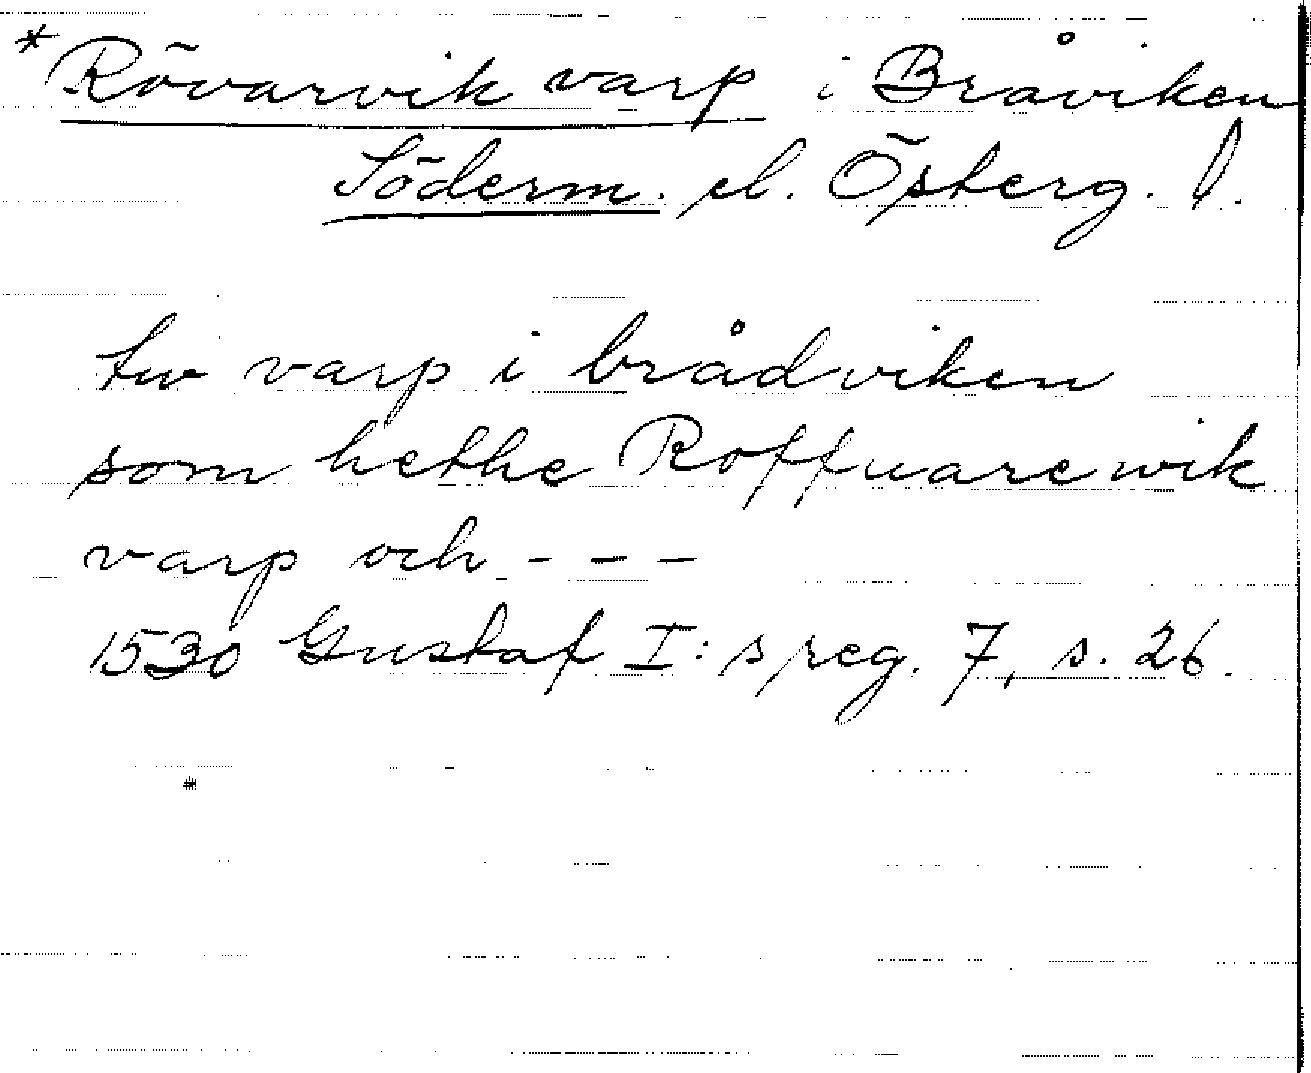 *Rövarvik varp i Bråviken
Söderm. el. Österg. l.
tw varp i brådviken
som hethe Roffuare wik
varp och - - -
1530 Gustaf I:s reg. 7, s. 26.